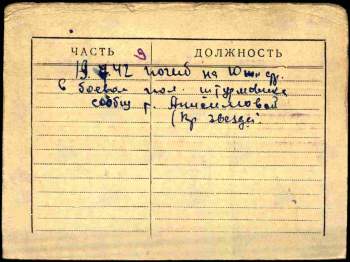 ЧАСТЬ ДОЛЖНОСТЬ
9
19 42 погиб на Южн фр.
в боевом пол. штурмовика
сообщ г. Анисимовой
(Кр звезда